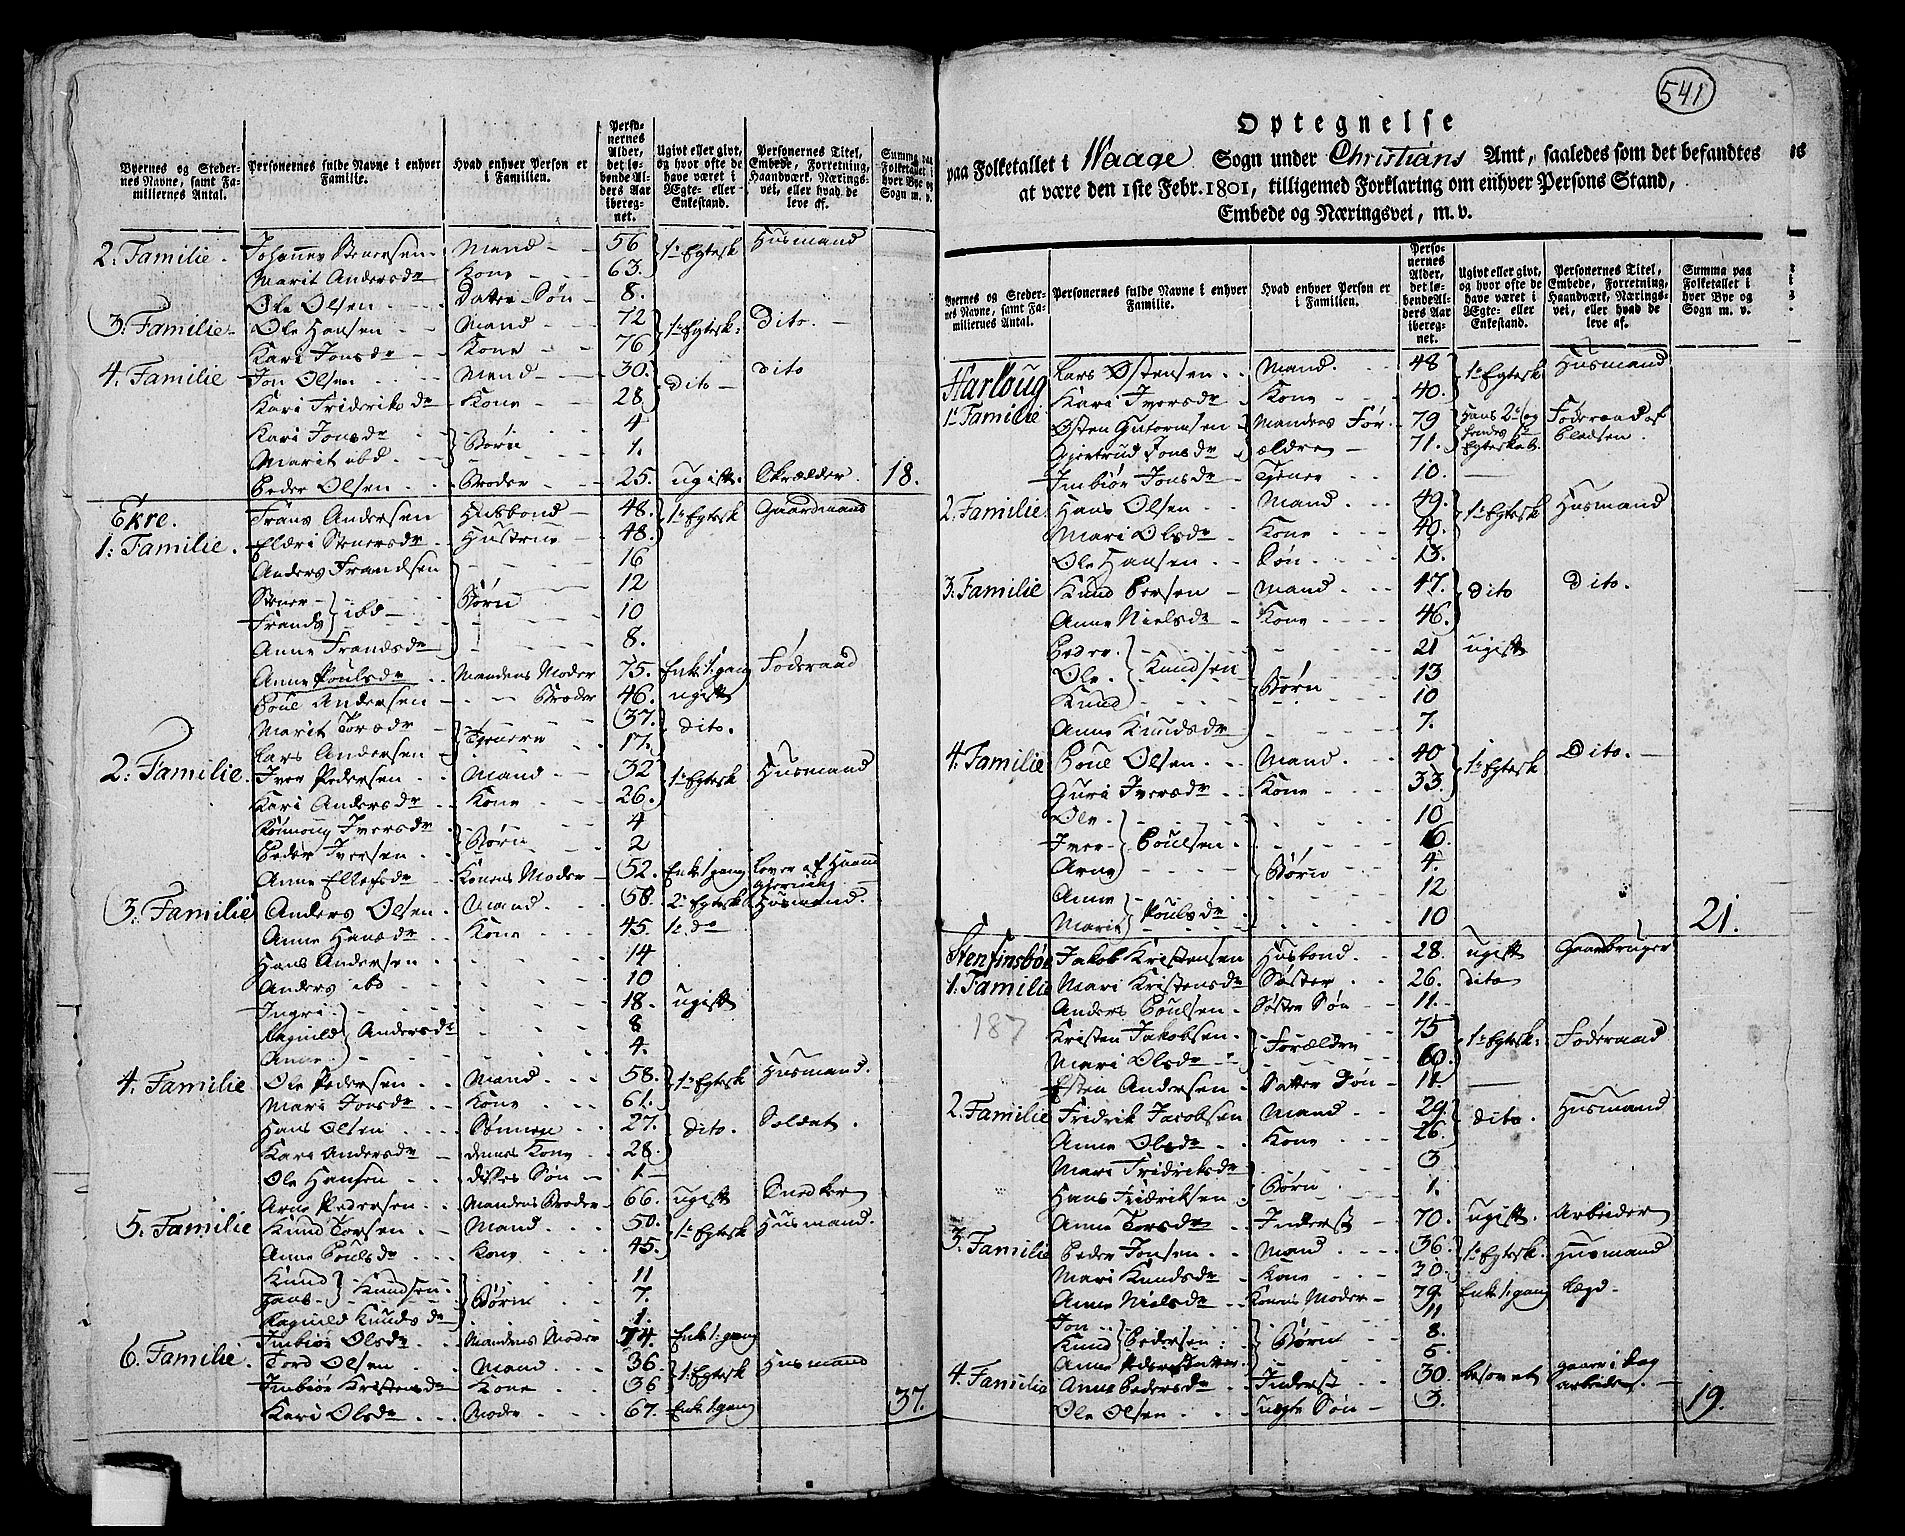 Byernes og Steder-
nes Navne, samt Fa-
miliernes Antal.
Personernes fulde Navne i enhver
Familie.
Hvad enhver Person er
i Familien.
Perso-
nernes
Alder,
det lø-
bende Al-
ders Aar
ibereg-
net.
Ugivt eller givt,
og hvor ofte de
have været i
Ægte- eller
Enkestand.
Personernes Titel,
Embede, Forretning,
Haandværk, Nærings-
vei, eller hvad de
leve af.
Summa paa
Folketallet i
hver Bye og
Sogn m. v.
2. Familie Johannes Stenersen Mand 56 1te Egtesk Husmand
Marit Andersdr Kone 63.
Ole Olsen Datter Søn 8.
3. Familie Ole Hansen Mand 72 1te Egtesk: Dito.
Kari Jonsdr Kone 76
4. Familie Jon Olsen Mand 30. dito dito
Kari Frideriksdr Kone 28
Kari Jonsdr Børn 4
Marit ibd 1.
Peder Olsen Broder 25. ugift. Skrædder 18.
Ekre.
1: Familie. Frans Andersen Husbond 48. 1te Egtesk Gaardmand
Eldri Stenersdr Hustrue 48.
Anders Frandsen 16
Stener ibd Børn 12
Frands 10
Anne Frandsdr 8.
Anne Poulsdr Mandens Moder 75. Enke 1. gang Føderaad
Poul Andersen Broder 46. ugift
Marit Toredr Tjenere 37. dito.
Lars Andersen 17.
2: Familie Iver Pedersen Mand 32 1te Egtesk Husmand
Kari Andersdr Kone 26.
Rønnoug Iversdr Børn 4
Peder Iversen 2
Anne Ellefsdr Konens Moder 52. Enke 1 gang lever af Haand
gierning
3: Familie Anders Olsen Mand 58. 2de Egtesk Husmand.
Anne Hansdr Kone 45. 1te do
Hans Andersen 14
Anders ibd 10
Ingri 18. ugift
Ragnild Andersdr 8
Anne 4.
4. Familie Ole Pedersen Mand 58. 1te Egtesk Husmand.
Mari Jonsdr Kone 61.
Hans Olsen Sønnen 27. dito. Soldat.
Kari Andersdr dennes Kone 28.
Ole Hansen disses Søn 1
Arne Pedersen Mandens Broder 66. ugift Snedker
5. Familie Knud Torsen Mand 50. 1te Egtesk Husmand.
Anne Poulsdr Kone 45.
Knud Knudsen Børn 11
Hans 7
Ragnild Knudsdr 1.
6. Familie. Imbiør Olsdr Mandens Moder 74. Enke 1. gang
Tord Olsen Mand 36. 1te Egtesk Husmand
Imbiør Kristensdr Kone 36
Kari Olsdr Moder 67. Enke 1 gang 37.
541
Optegnelse
paa Folketallet i Waage Sogn under Christians Amt, saaledes som det befandtes
at være den 1ste Febr. 1801, tilligemed Forklaring om enhver Persons Stand,
Embede og Næringsvei, m. v.
Byernes og Steder-
nes Navne, samt Fa-
miliernes Antal.
Personernes fulde Navne i enhver
Familie.
Hvad enhver Person er
i Familien.
Perso-
nernes
Alder,
det lø-
bende Al-
ders Aar
ibereg-
net.
Ugivt eller givt,
og hvor ofte de
have været i
Ægte- eller
Enkestand.
Personernes Titel,
Embede, Forretning,
Haandværk, Nærings-
vei, eller hvad de
leve af.
Summa paa
Folketallet i
hver Bye og
Sogn m. v.
Harloug Lars Østensen Mand. 48 1te Egtesk Husmand
1te Familie Kari Iversdr Kone 40.
Østen Gutormsen Mandens For- 79 hans 2de og Føderaad af
Gjertrud Jonsdr ældre 71. hendes 1te Pladsen.
Egteskab.
Imbiør Jonsdr Tjener 10.
2. Familie Hans Olsen Mand 49. 1te Egtesk Husmand
Mari Olsdr Kone 40.
Ole Hansen Søn 13.
3. Familie Knud Persen Mand 47. dito Dito.
Anne Nielsdr Kone 46.
Peder 21 ugift
Ole Knudsen 13
Knud Børn 10
Anne Knudsdr 7.
4. Familie Poul Olsen Mand 40 1te Egtesk Dito.
Guri Iversdr Kone 33.
Ole 10
Iver Poulsen 6.
Arne Børn 4.
Anne 12
Marie Poulsdr 10 21.
Stenfinsbøe Jakob Kristensen Husbond 28. ugift Gaardbruger
1. Familie Mari Kristensdr Søster 26. dito
Anders Poulsen Søster Søn 11.
187
Kristen Jakobsen Forældre 75 1te Egtesk: Føderaad
Mari Olsdr 60.
Esten Andersen Datter Søn 11.
2. Familie Fridrik Jacobsen Mand 29. dito. Husmand
Anne Olsdr Kone 26.
Mari Fridriksdr 3
Hans Fridriksen Børn 1.
Anne Torsdr Inderst 70. ugift. Arbeider
3. Familie Peder Jonsen Mand 36. 1te Egtesk. Husmand
Mari Knudsdr Kone 30.
Anne Nielsdr Konens Moder 79. Enke 1. gang Lægd
Jon 11
Knud Pedersen Børn 8.
Anne Peders Datter. 5.
4. Familie Anne Pedersdr Inderst 30. besovet gaaer i Dag
arbeide.
Ole Olsen uægte Søn 3. 19.